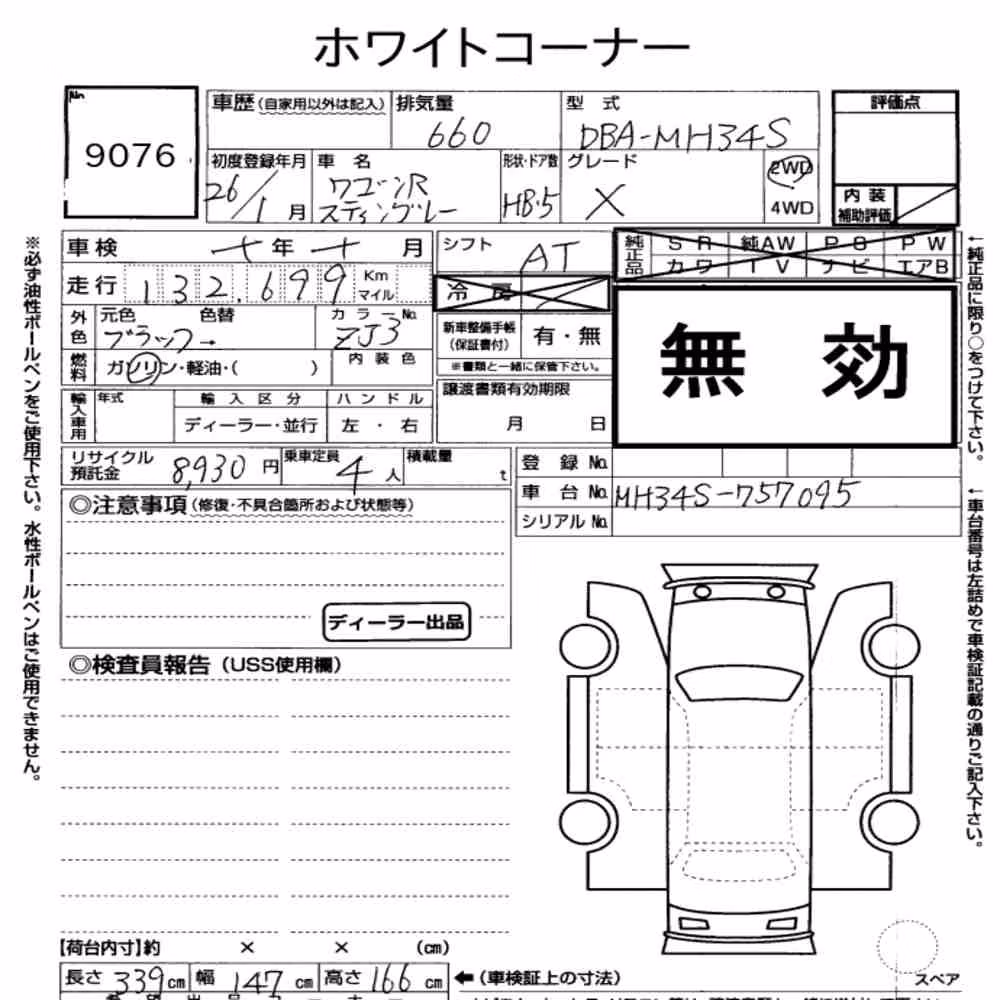 ホワイトコーナー
No. 9076
車歴(自家用以外は記入) 排気量 660 型 式 DBA-MH34S 評価点
初度登録年月 26/1月 車 名 ワゴンR スティングレー 形状・ドア数 HB・5 グレード X 2WD 4WD
内 装 補助評価
車検 年 月 シフト AT 純正品 S R 純AW P S P W
カ ワ T V ナ ビ エアB
走行 132,699 Km マイル 冷 房
外色 元色 ブラック→ 色替 カラーNo. ZJ3 新車整備手帳(保証書付) 有・無
燃料 ガソリン・軽油・( ) 内 装 色 ※書類と一緒に保管下さい。
無 効
輸入車用 年式 輸 入 区 分 ディーラー・並行 ハ ン ド ル 左 ・ 右 譲渡書類有効期限 月 日
リサイクル預託金 8,930 円 乗車定員 4 人 積載量 t 登 録 No.
車 台 No. MH34S-757095
シリアル No.
◎注意事項(修復・不具合箇所および状態等)
ディーラー出品
◎検査員報告(USS使用欄)
【荷台内寸】約 × × (cm)
長さ 339 cm 幅 147 cm 高さ 166 cm ←(車検証上の寸法)
スペア
※必ず油性ボールペンをご使用下さい。水性ボールペンはご使用できません。
←純正品に限り○をつけて下さい。
←車台番号は左詰めで車検証記載の通りご記入下さい。